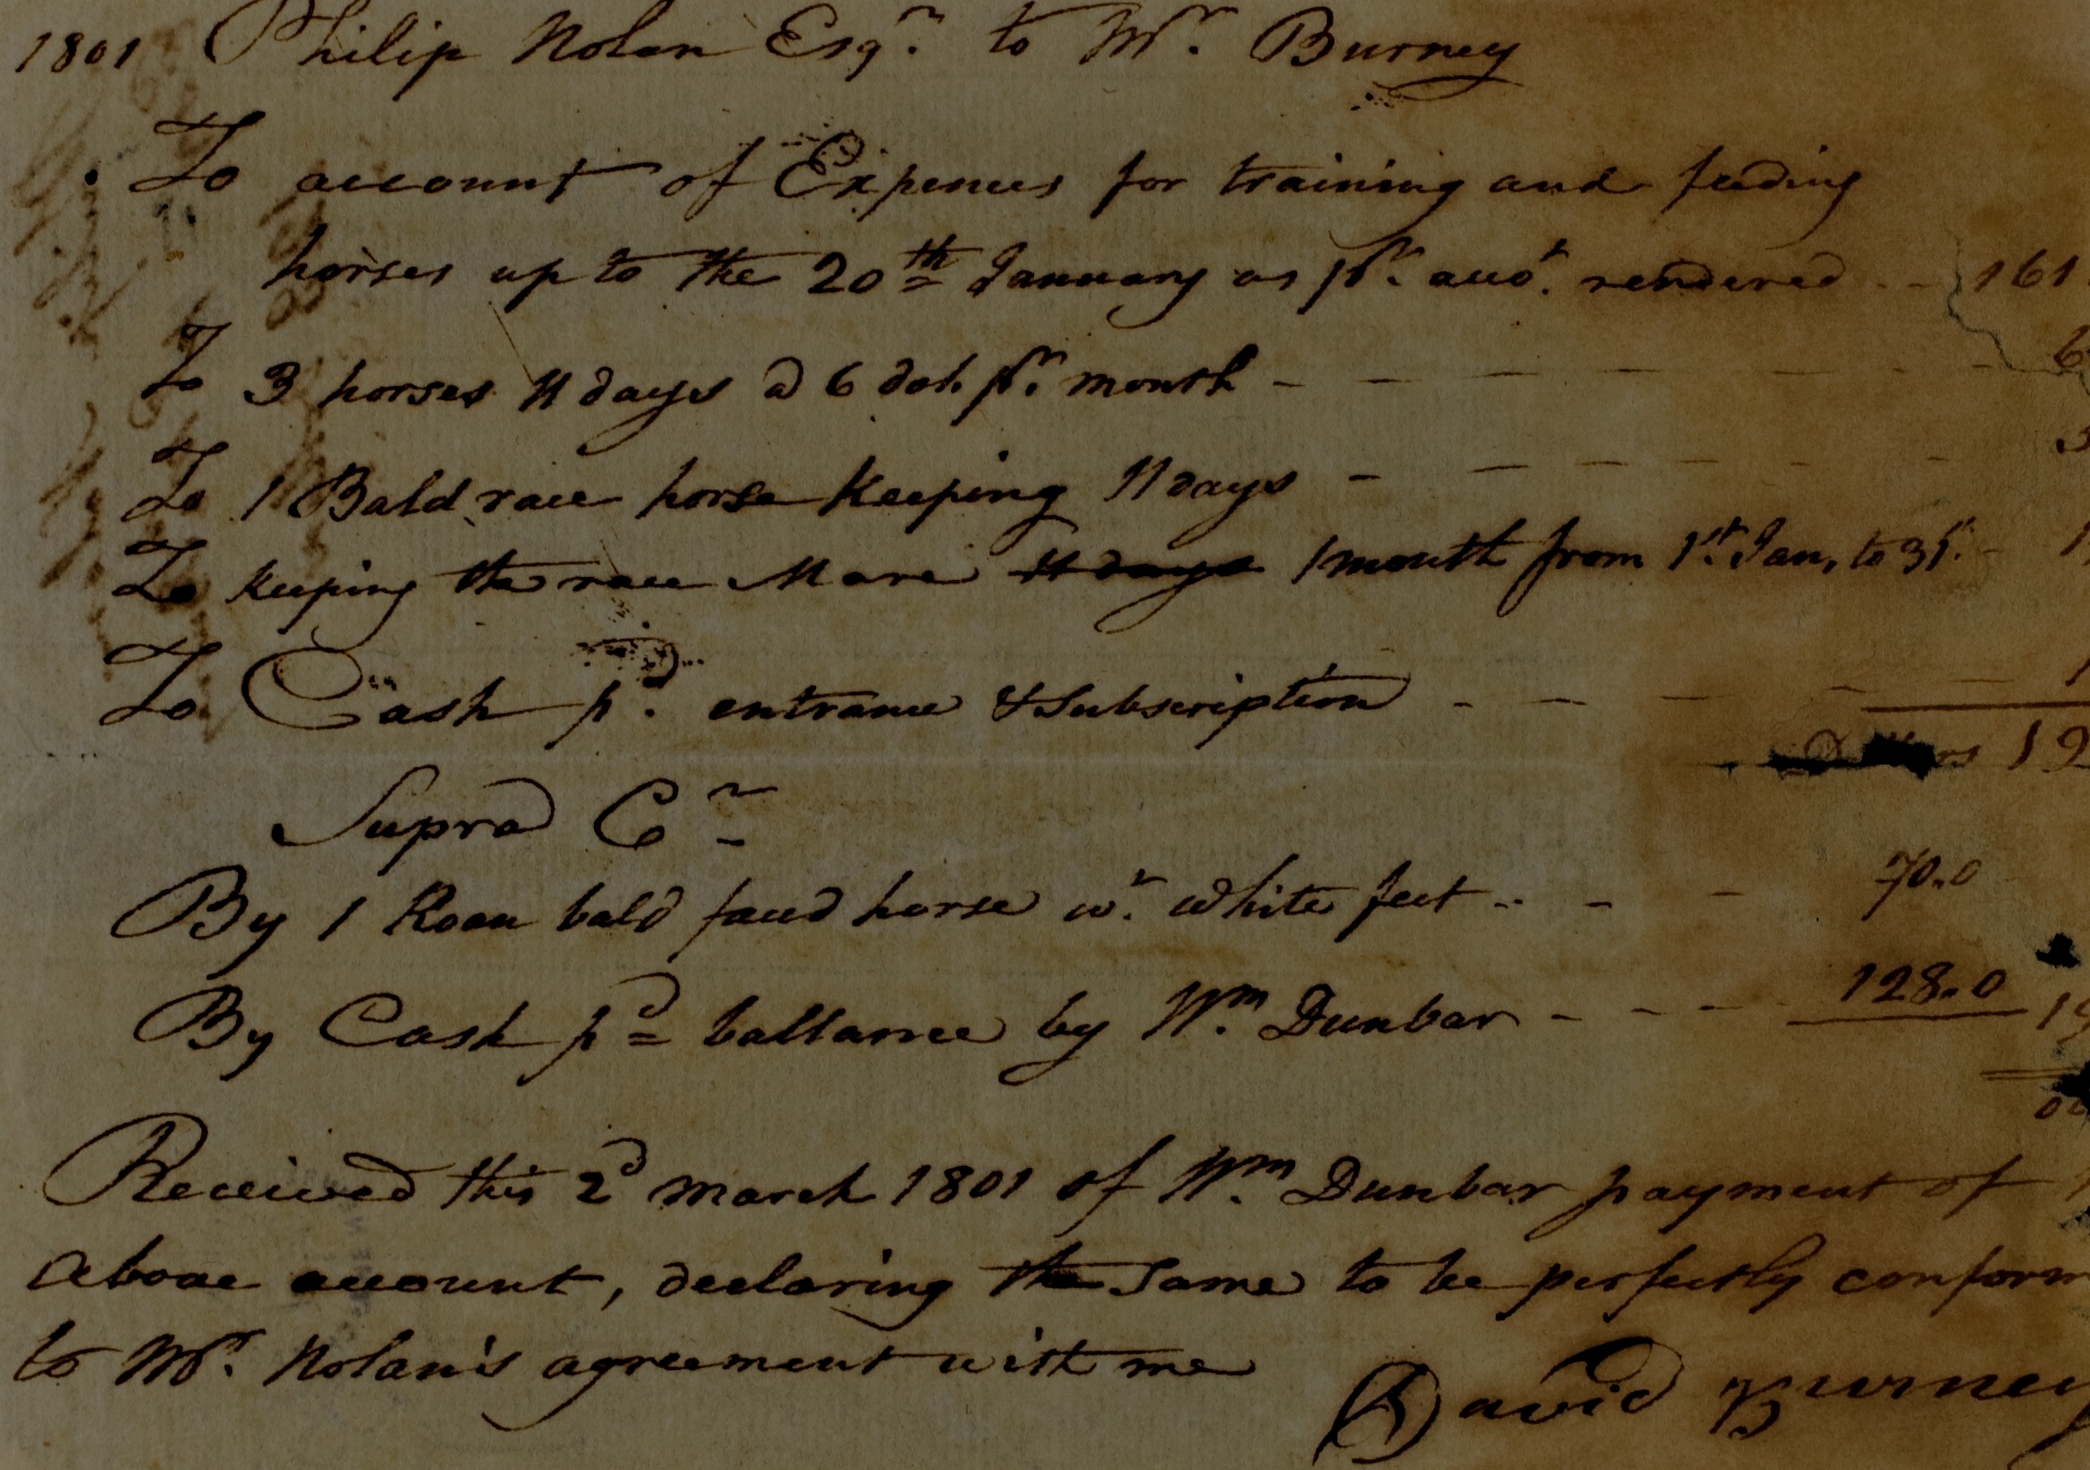 1801 Philip Nolan Esqr. to Mr. Burney
To account of Expences for training and feeding
horses up to the 20th January as pr. accot. rendered - - 161
To 3 horses 11 days @ 6 dol. pr. month - - - - - - 6
To 1 Bald race horse keeping 11 days - - - - - - 3
To keeping the race Mare 11 days 1 month from 1st. Jan, to 31st. - 1
To Cash pd. entrance & Subscription - - - - - - 1
Dollars 19
Supra Cr
By 1 Roan bald faced horse wt. white feet - - - 70.0
By Cash pd ballance by Wm. Dunbar - - - - 128.0 19
Received this 2d March 1801 of Wm. Dunbar payment of
above account, declaring the same to be perfectly conform
to Mr. Nolan's agreement with me
David Burney